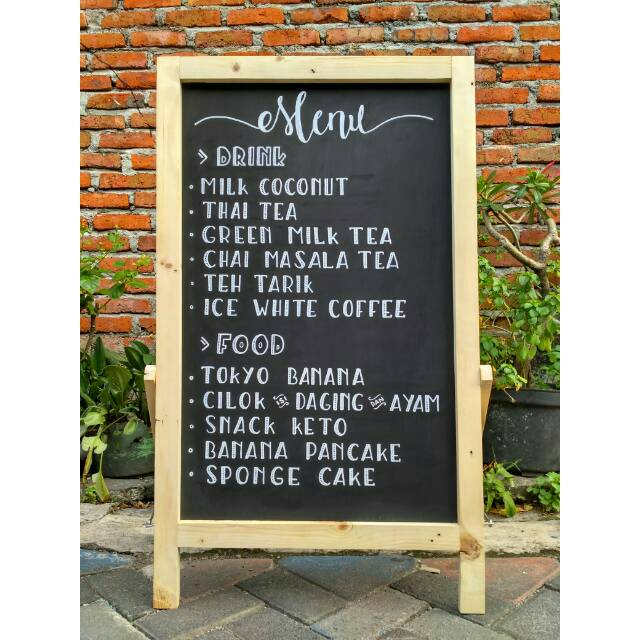 Menu
> DRINK
• MILK COCONUT
• THAI TEA
• GREEN MILK TEA
• CHAI MASALA TEA
• TEH TARIK
• ICE WHITE COFFEE
> FOOD
• TOKYO BANANA
• CILOK ISI DAGING DAN AYAM
• SNACK KETO
• BANANA PANCAKE
• SPONGE CAKE